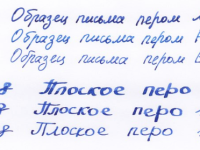 Образец письма пером
Образец письма пером
Образец письма пером
Плоское перо
Плоское перо
Плоское перо